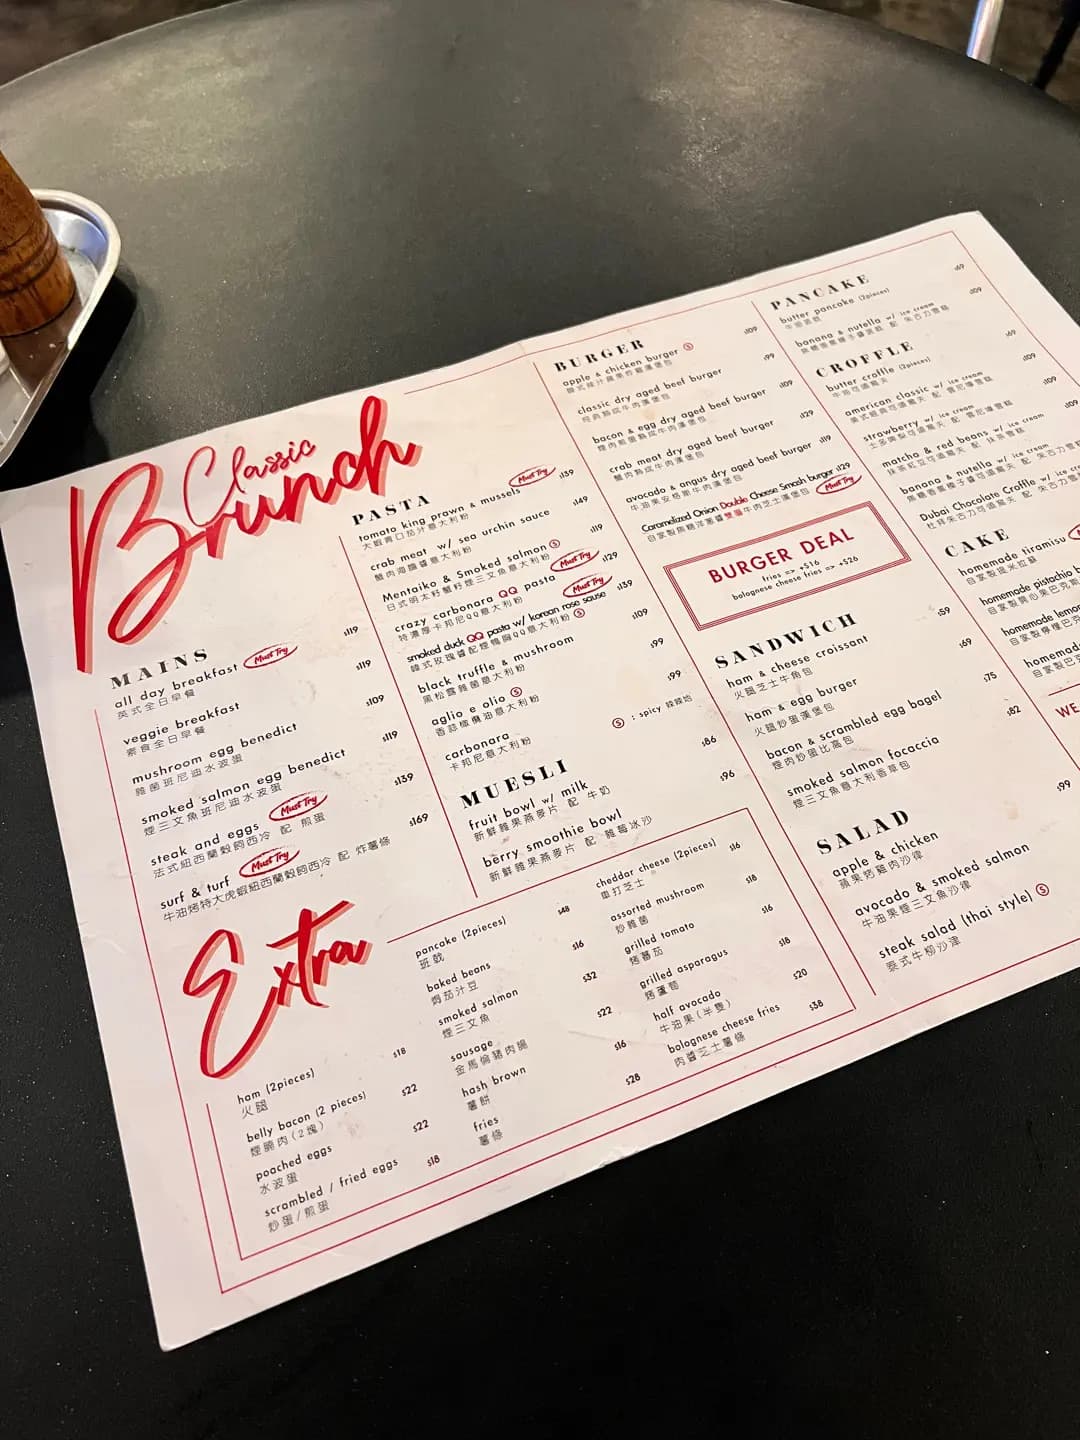 Classic
Brunch
MAINS
all day breakfast Must Try $119
英式全日早餐
veggie breakfast $119
素食全日早餐
mushroom egg benedict $109
雜菌班尼迪水波蛋
smoked salmon egg benedict $119
煙三文魚班尼迪水波蛋
steak and eggs Must Try $139
法式紐西蘭穀飼西冷 配 煎蛋
surf & turf Must Try $169
牛油烤特大虎蝦紐西蘭穀飼西冷 配 炸薯條
PASTA
tomato king prawn & mussels Must Try $139
大蝦青口茄汁意大利粉
crab meat w/ sea urchin sauce $149
蟹肉海膽醬意大利粉
Mentaiko & Smoked salmon Ⓢ $119
日式明太籽蟹籽煙三文魚意大利粉
crazy carbonara QQ pasta Must Try $129
特濃厚卡邦尼QQ意大利粉
smoked duck QQ pasta w/ korean rose sause Must Try $139
韓式玫瑰醬配煙鴨胸QQ意大利粉 Ⓢ
black truffle & mushroom $109
黑松露雜菌意大利粉
aglio e olio Ⓢ $99
香蒜欖油意大利粉
carbonara $99
卡邦尼意大利粉
Ⓢ : spicy 辣辣哋
MUESLI
fruit bowl w/ milk $86
新鮮雜果燕麥片 配 牛奶
berry smoothie bowl $96
新鮮雜果燕麥片 配 雜莓冰沙
BURGER
apple & chicken burger Ⓢ $109
classic dry aged beef burger $99
經典熟成牛肉漢堡包
bacon & egg dry aged beef burger $109
煙肉煎蛋熟成牛肉漢堡包
crab meat dry aged beef burger $129
蟹肉熟成牛肉漢堡包
avocado & angus dry aged beef burger $119
牛油果安格斯牛肉漢堡包
Caramelized Onion Double Cheese Smash burger $129
自家製焦糖洋蔥醬雙層牛肉芝士漢堡包 Must Try
BURGER DEAL
fries => +$16
bolognese cheese fries => +$26
SANDWICH
ham & cheese croissant $59
火腿芝士牛角包
ham & egg burger $69
火腿炒蛋漢堡包
bacon & scrambled egg bagel $75
煙肉炒蛋比高包
smoked salmon focaccia $82
煙三文魚意大利香草包
SALAD
apple & chicken $99
蘋果烤雞肉沙律
avocado & smoked salmon
牛油果煙三文魚沙律
steak salad (thai style) Ⓢ
泰式牛柳沙津
PANCAKE
butter pancake (2pieces) $69
牛油班戟
banana & nutella w/ ice cream $109
焦糖香蕉榛子醬班戟 配 朱古力雪糕
CROFFLE
butter croffle (2pieces) $69
牛油可頌窩夫
american classic w/ ice cream $109
美式經典可頌窩夫 配 雲尼嗱雪糕
strawberry w/ ice cream $109
士多啤梨可頌窩夫 配 雲尼嗱雪糕
matcha & red beans w/ ice cream $109
抹茶紅豆可頌窩夫 配 抹茶雪糕
banana & nutella w/ ice cream
焦糖香蕉榛子醬可頌窩夫 配 朱古力雪
Dubai Chocolate Croffle w/ ice cream
杜拜朱古力可頌窩夫 配 朱古力雪
CAKE
homemade tiramisu
自家製提米拉蘇
homemade pistachio b
自家製開心果巴克斯
homemade lemon
自家製檸檬巴克
homemade
自家製巴克
WE
Extra
ham (2pieces) $18
火腿
belly bacon (2 pieces) $22
煙腩肉(2塊)
poached eggs $22
水波蛋
scrambled / fried eggs $18
炒蛋/煎蛋
pancake (2pieces) $48
班戟
baked beans $16
焗茄汁豆
smoked salmon $32
煙三文魚
sausage $22
金馬倫豬肉腸
hash brown $16
薯餅
fries $28
薯條
cheddar cheese (2pieces) $16
車打芝士
assorted mushroom $18
炒雜菌
grilled tomato $16
烤蕃茄
grilled asparagus $18
烤蘆筍
half avocado $20
牛油果(半隻)
bolognese cheese fries $38
肉醬芝士薯條